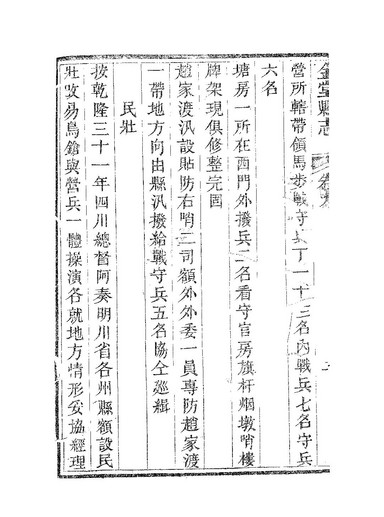 金堂縣志
營所轄帶領馬步戰守兵丁一十三名內戰兵七名守兵
六名
塘房一所在西門外撥兵二名看守官房旗杆烟墩哨樓
牌架現俱修整完固
趙家渡汛設貼防右哨二司額外外委一員專防趙家渡
一帶地方向由縣汛撥給戰守兵五名協仝廵緝
民壯
按乾隆三十一年四川總督阿奏明川省各州縣額設民
壯攺易鳥鎗與營兵一體操演各就地方情形妥協經理